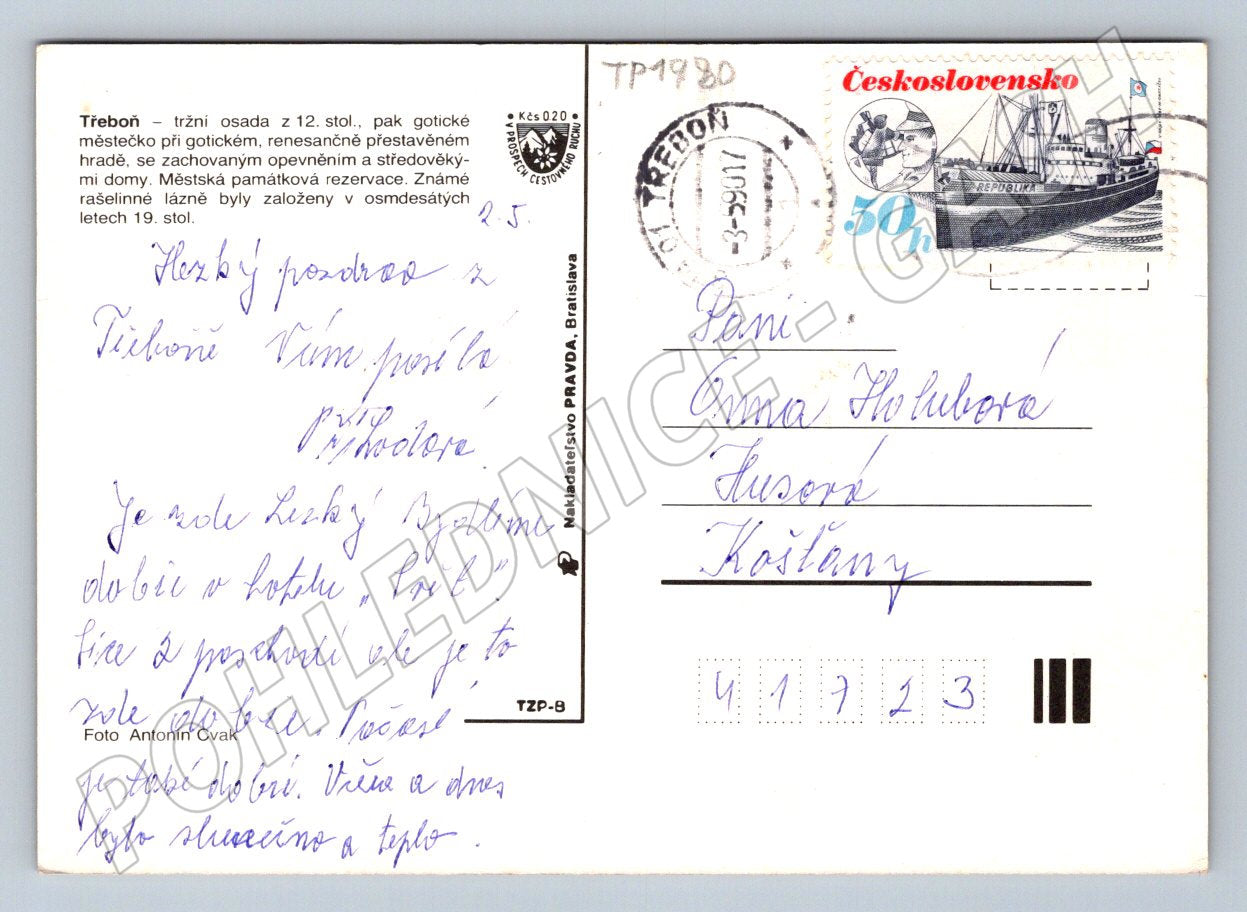 Třeboň – tržní osada z 12. stol., pak gotické
městečko při gotickém, renesančně přestavěném
hradě, se zachovaným opevněním a středověký-
mi domy. Městská památková rezervace. Známé
rašelinné lázně byly založeny v osmdesátých
letech 19. stol.
2.5.
Hezký pozdrav z
Třeboně Vám posílá
Je zde hezky Bydlíme
dobře v hotelu „Svět".
Sice 2 poschodí ale je to
zde dobře. Počasí
je také dobré. Včera a dnes
bylo slunečno a teplo.
Foto Antonín Cvak
• Kčs 0,20 •
V PROSPĚCH CESTOVNÉHO RUCHU
Nakladateľstvo PRAVDA, Bratislava
TZP-B
TP1980
TŘEBOŇ
-3-5 90 17
Československo
REPUBLIKA
50h
Paní
Anna Holubová
Husová
Košťany
41723
POHLEDNICE - GASH